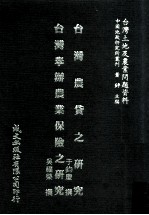 台灣土地及農業問題資料
中國地政研究所叢刊 蕭錚主編
台灣農貸之研究
撰
台灣舉辦農業保險之研究
撰
成文出版社有限公司印行